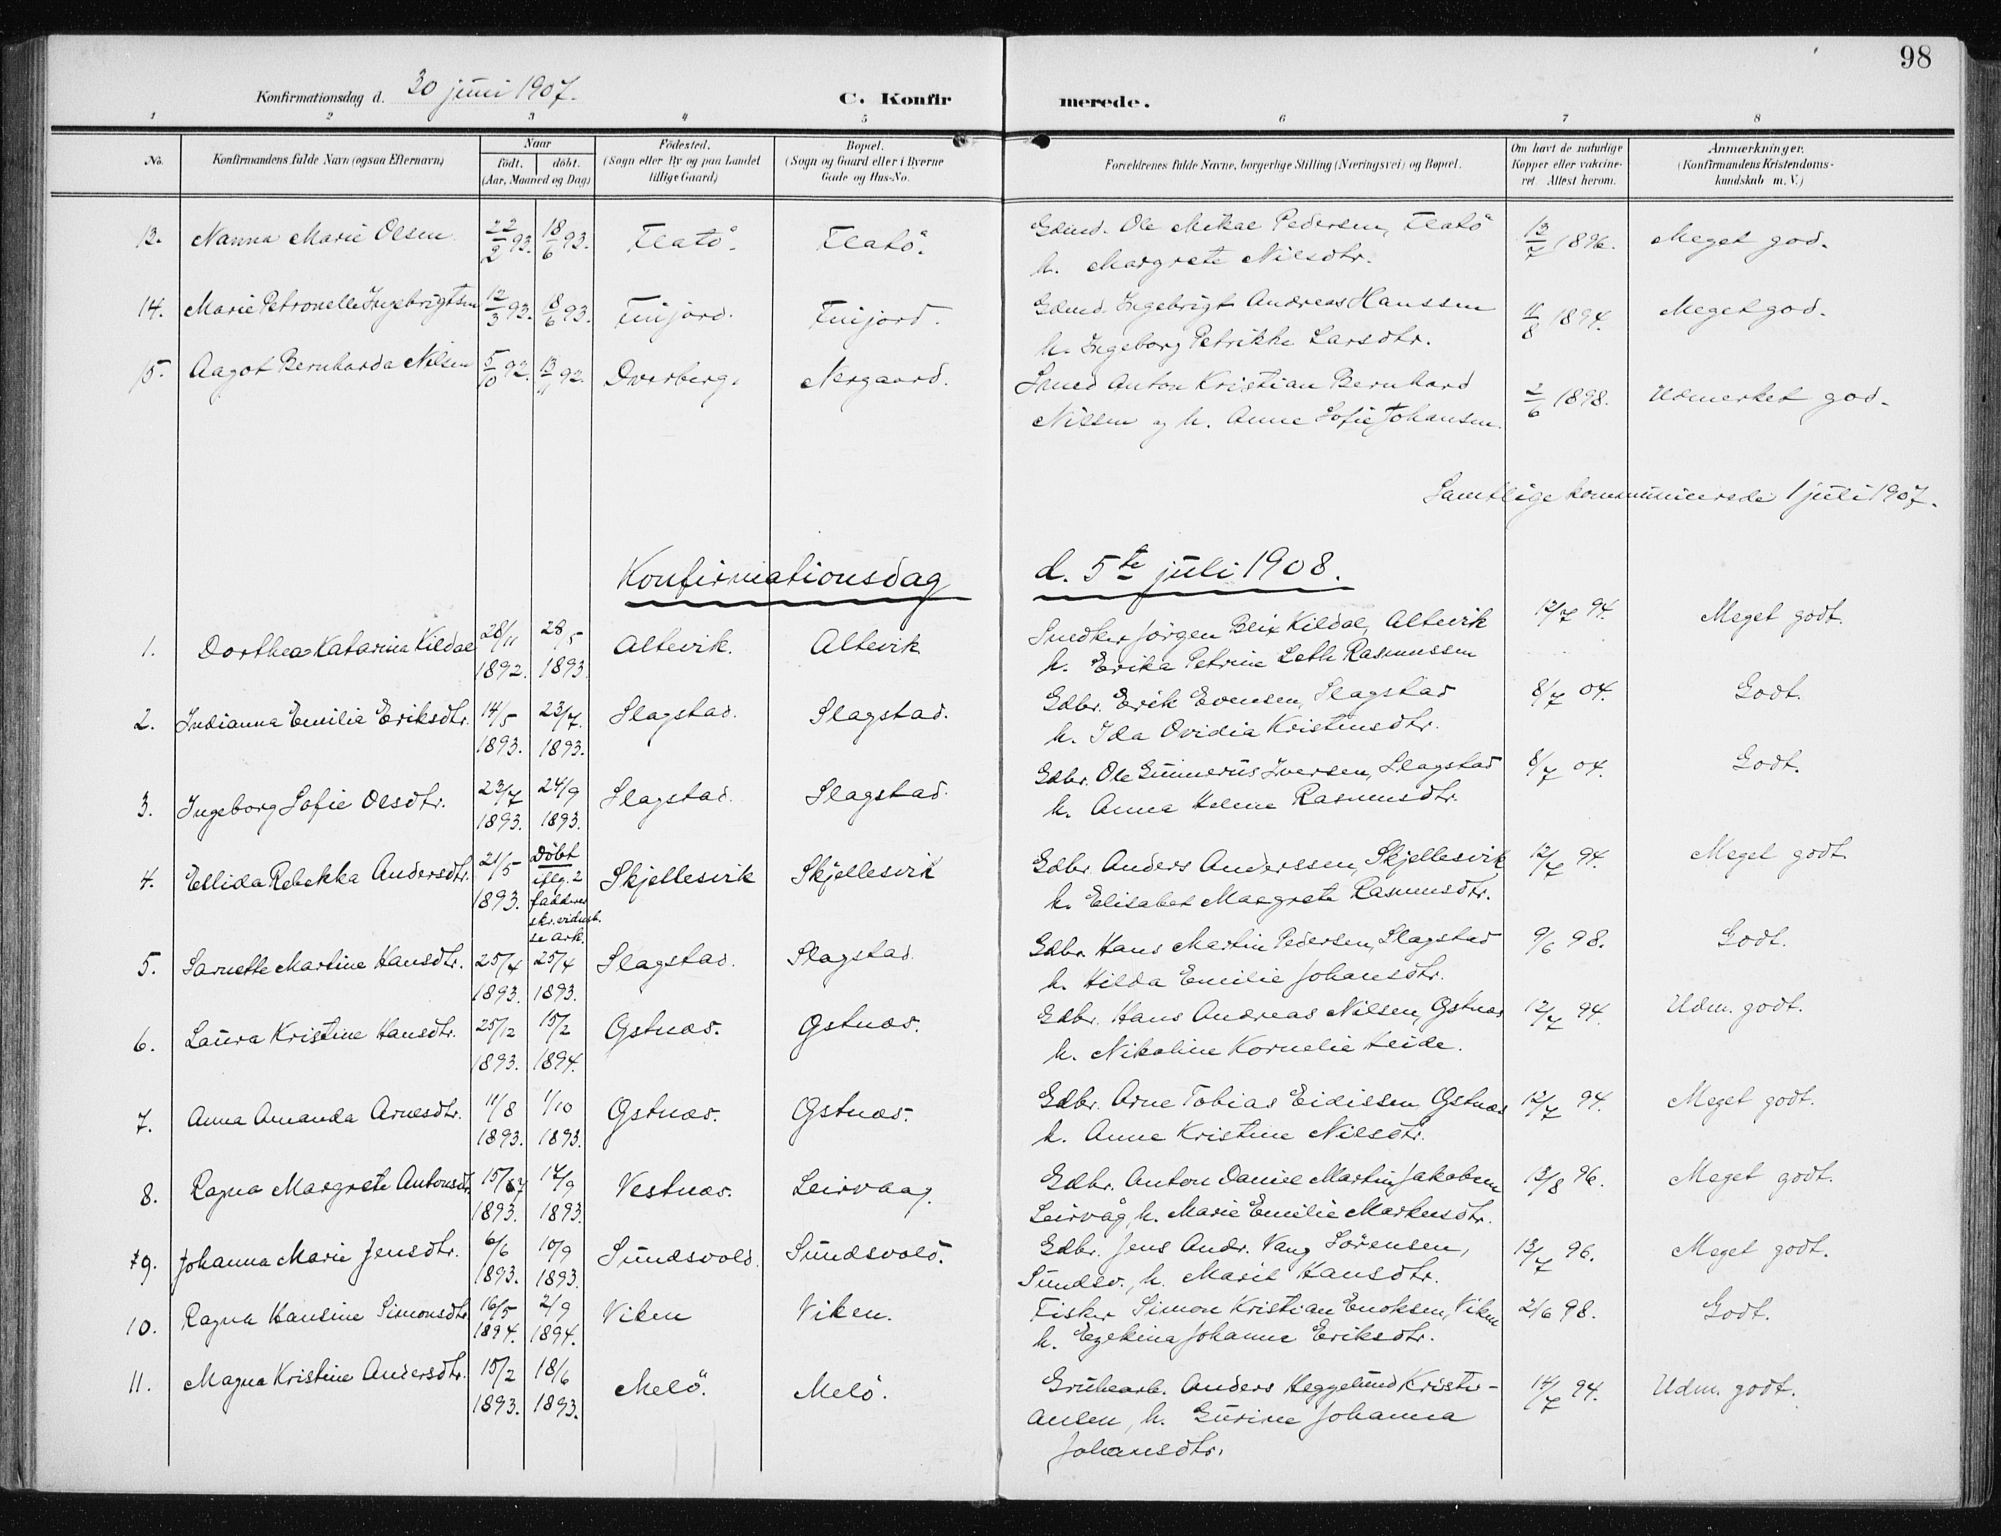 98
Konfirmationsdag d. 30 juni 1907.
C. Konfirmerede.
1 2 3 4 5 6 7 8
No. Konfirmandens fulde Navn (ogsaa Efternavn) Naar født. døbt. (Aar, Maaned og Dag) Fødested. (Sogn eller By og paa Landet tillige Gaard) Bopæl. (Sogn og Gaard eller i Byerne Gade og Hus-No. Forældrenes fulde Navne, borgerlige Stilling (Næringsvei) og Bopæl. Om havt de naturlige Kopper eller vakcineret. Attest herom. Anmærkninger. (Konfirmandens Kristendomskundskab m. V.)
13. Nanna Marie Olsen 22/2 93. 18/6 93. Flatö. Flatö. Gdmd. Ole Mikal Pedersen, Flatö 13/7 1896. Meget god.
h. Margrete Nilsdtr.
14. Marie Petronelle Ingebrigtsen 12/3 93. 8/6 93. Finjord. Finjord. Gdmd. Ingebrigt Andreas Hanssen 11/8 1894. Meget god.
h. Ingeborg Petrikke Larsdtr.
15. Aagot Bernharda Nilsen 5/10 92. 13/11 92. Dverberg. Nergaard. Smed Anton Kristian Bernhard 2/6 1898. Udmerket god.
Nilsen og h. Anne Sofie Johansen.
Samtlige kommunicerede 1 juli 1907.
Konfirmationsdag d. 5te juli 1908.
1. Dorthea Katarina Kildal 28/11 1892. 28/5 1893. Altevik. Altevik Snedker Jörgen Blix Kildal, Altevik 12/7 94. Meget godt.
h. Erika Petrine Leth Rasmussen
2. Indianna Emilia Eriksdtr. 14/5 1893. 23/7 1893. Slagstad. Slagstad. Gdbr. Erik Evensen, Slagstad 8/7 04. Godt.
h. Ida Ovidia Kristensdtr.
3. Ingeborg Sofie Olsdtr. 23/7 1893. 24/9 1893. Slagstad. Slagstad. Gdbr. Ole Gunnerus Iversen, Slagstad 8/7 04. Godt.
h. Anna Helene Rasmusdtr.
4. Ellida Rebekka Andersdtr. 21/5 1893. Döbt iflg. 2 fadderes skr. vidnesb. se ark. Skjellesvik Skjellesvik Gdbr. Anders Anderssen, Skjellesvik 12/7 94. Meget godt.
h. Elisabet Margrete Rasmusdtr.
5. Sarnette Martine Hansdtr. 25/4 1893. 25/4 1893. Slagstad. Slagstad. Gdbr. Hans Martin Pedersen, Slagstad 9/6 98. Godt.
h. Hilda Emilie Johansdtr.
6. Laura Kristine Hansdtr. 25/12 1893. 15/2 1894. Gstnæs. Gstnæs. Gdbr. Hans Andreas Nilsen, Gstnæs 12/7 94. Udm. godt.
h. Nikoline Kornelie Leide.
7. Anna Amanda Arnesdtr. 11/8 1893. 1/10 1893. Gstnæs. Gstnæs. Gdbr. Arne Tobias Eidissen Gstnæs 12/7 94. Meget godt.
h. Anne Kristine Nilsdtr.
8. Ragna Margrete Antonsdtr. 15/7 1893. 17/9 1893. Vestnæs. Leirvaag. Gdbr. Anton Daniel Martin Jakobsen 13/8 96. Meget godt.
Leirvåg, h. Marie Emilie Markusdtr.
9. Johanna Marie Jensdtr. 6/6 1893. 10/9 1893. Sundsvold. Sundsvold. Gdbr. Jens Andr. Vang Sörensen, 13/7 96. Meget godt.
Sundsv., h. Marit Hansdtr.
10. Ragna Hansine Simonsdtr. 16/5 1894. 2/9 1894. Viken Viken. Fisker Simon Kristian Enoksen, Viken 2/6 98. Godt.
h. Ezekina Johanne Eriksdtr.
11. Magna Kristine Andersdtr. 15/2 1893. 18/6 1893. Melö. Melö. Grubearb. Anders Heggelund Kristi- 14/7 94. Udm. godt.
ansen, h. Gurine Johanna
Johansdtr.